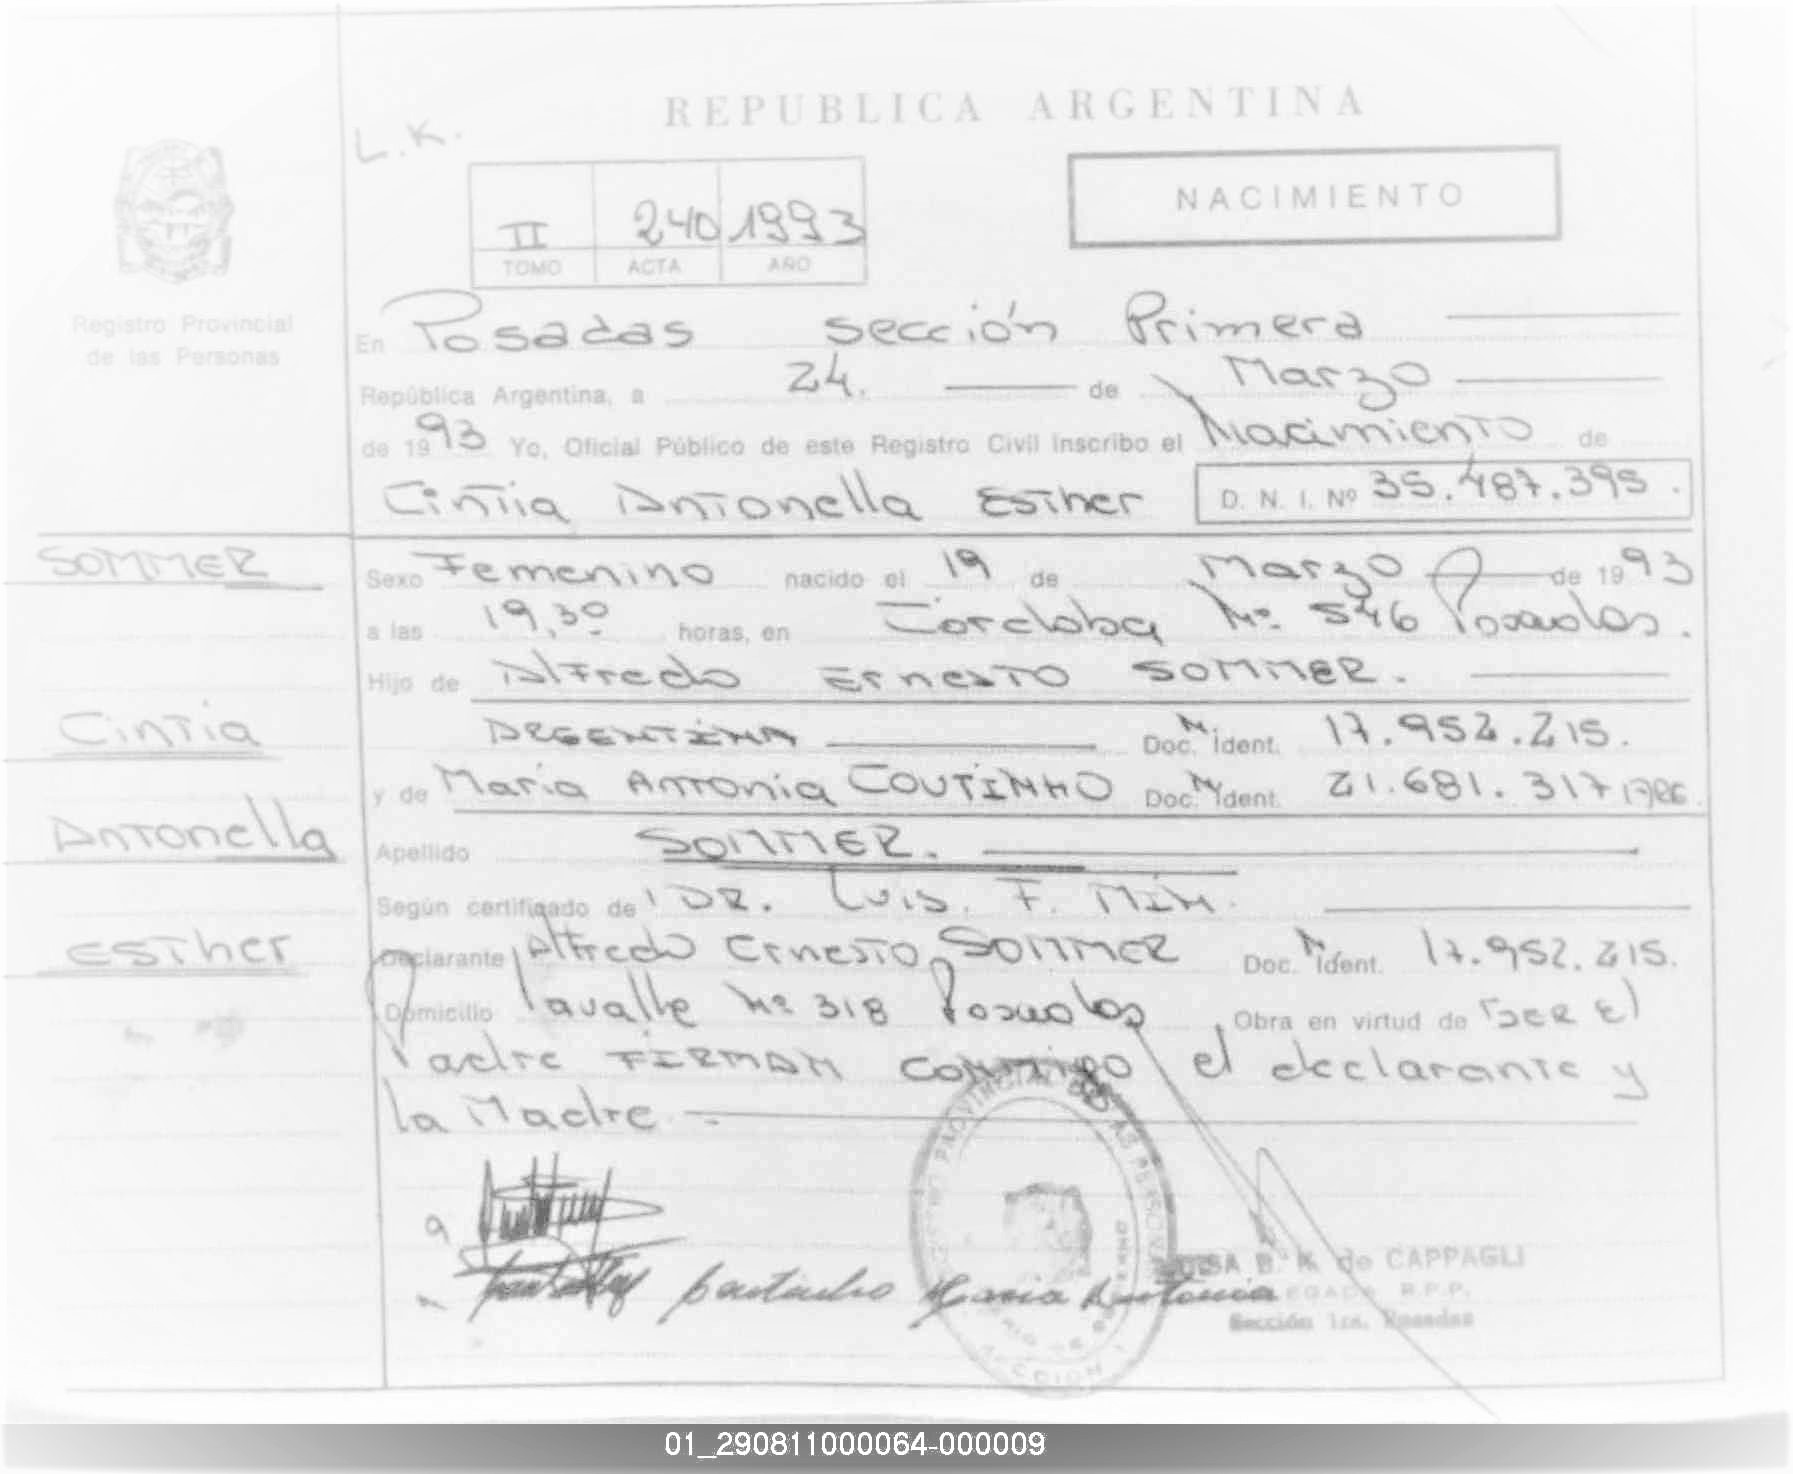 REPUBLICA ARGENTINA
L.K.
NACIMIENTO
II 240 1993
TOMO ACTA AÑO
Registro Provincial
de las Personas
En Posadas sección Primera
República Argentina, a 24. de Marzo
de 1993 Yo, Oficial Público de este Registro Civil inscribo el Nacimiento de
Cintia Antonella Esther D. N. I. Nº 35.487.395.
SOMMER
Sexo Femenino nacido el 19 de Marzo de 1993
a las 19,30 horas, en Córdoba Nº 546 Posadas.
Hijo de Alfredo Ernesto SOMMER.
Cintia
ARGENTINA Doc. N Ident. 17.952.215.
y de Maria Antonia COUTINHO Doc. N Ident. 21.681.317
Antonella
Apellido SOMMER.
Según certificado de DR. Luis. F.
Esther
Declarante Alfredo Ernesto SOMMER Doc. N Ident. 17.952.215.
Domicilio Lavalle Nº 318 Posadas, Obra en virtud de SER El
Padre FIRMAN CONMIGO el declarante y
la Madre
REGISTRO PROVINCIAL DE LAS PERSONAS
SECCION 1
Coutinho Maria Antonia
de CAPPAGLI
DELEGADA R.P.P.
Sección 1ra. Posadas
01_290811000064-000009